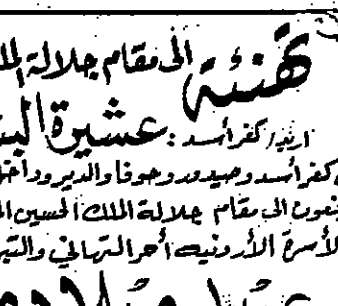 تهنئة
الى مقام جلالة الملـ
اربد / كفرأسد : عشيرة البـ
كفرأسد وصيدور وحوفا والدير وداخـ
يرفعون الى مقام جلالة الملك الحسين
الأسرة الأردنيه أحر التهاني والتبر